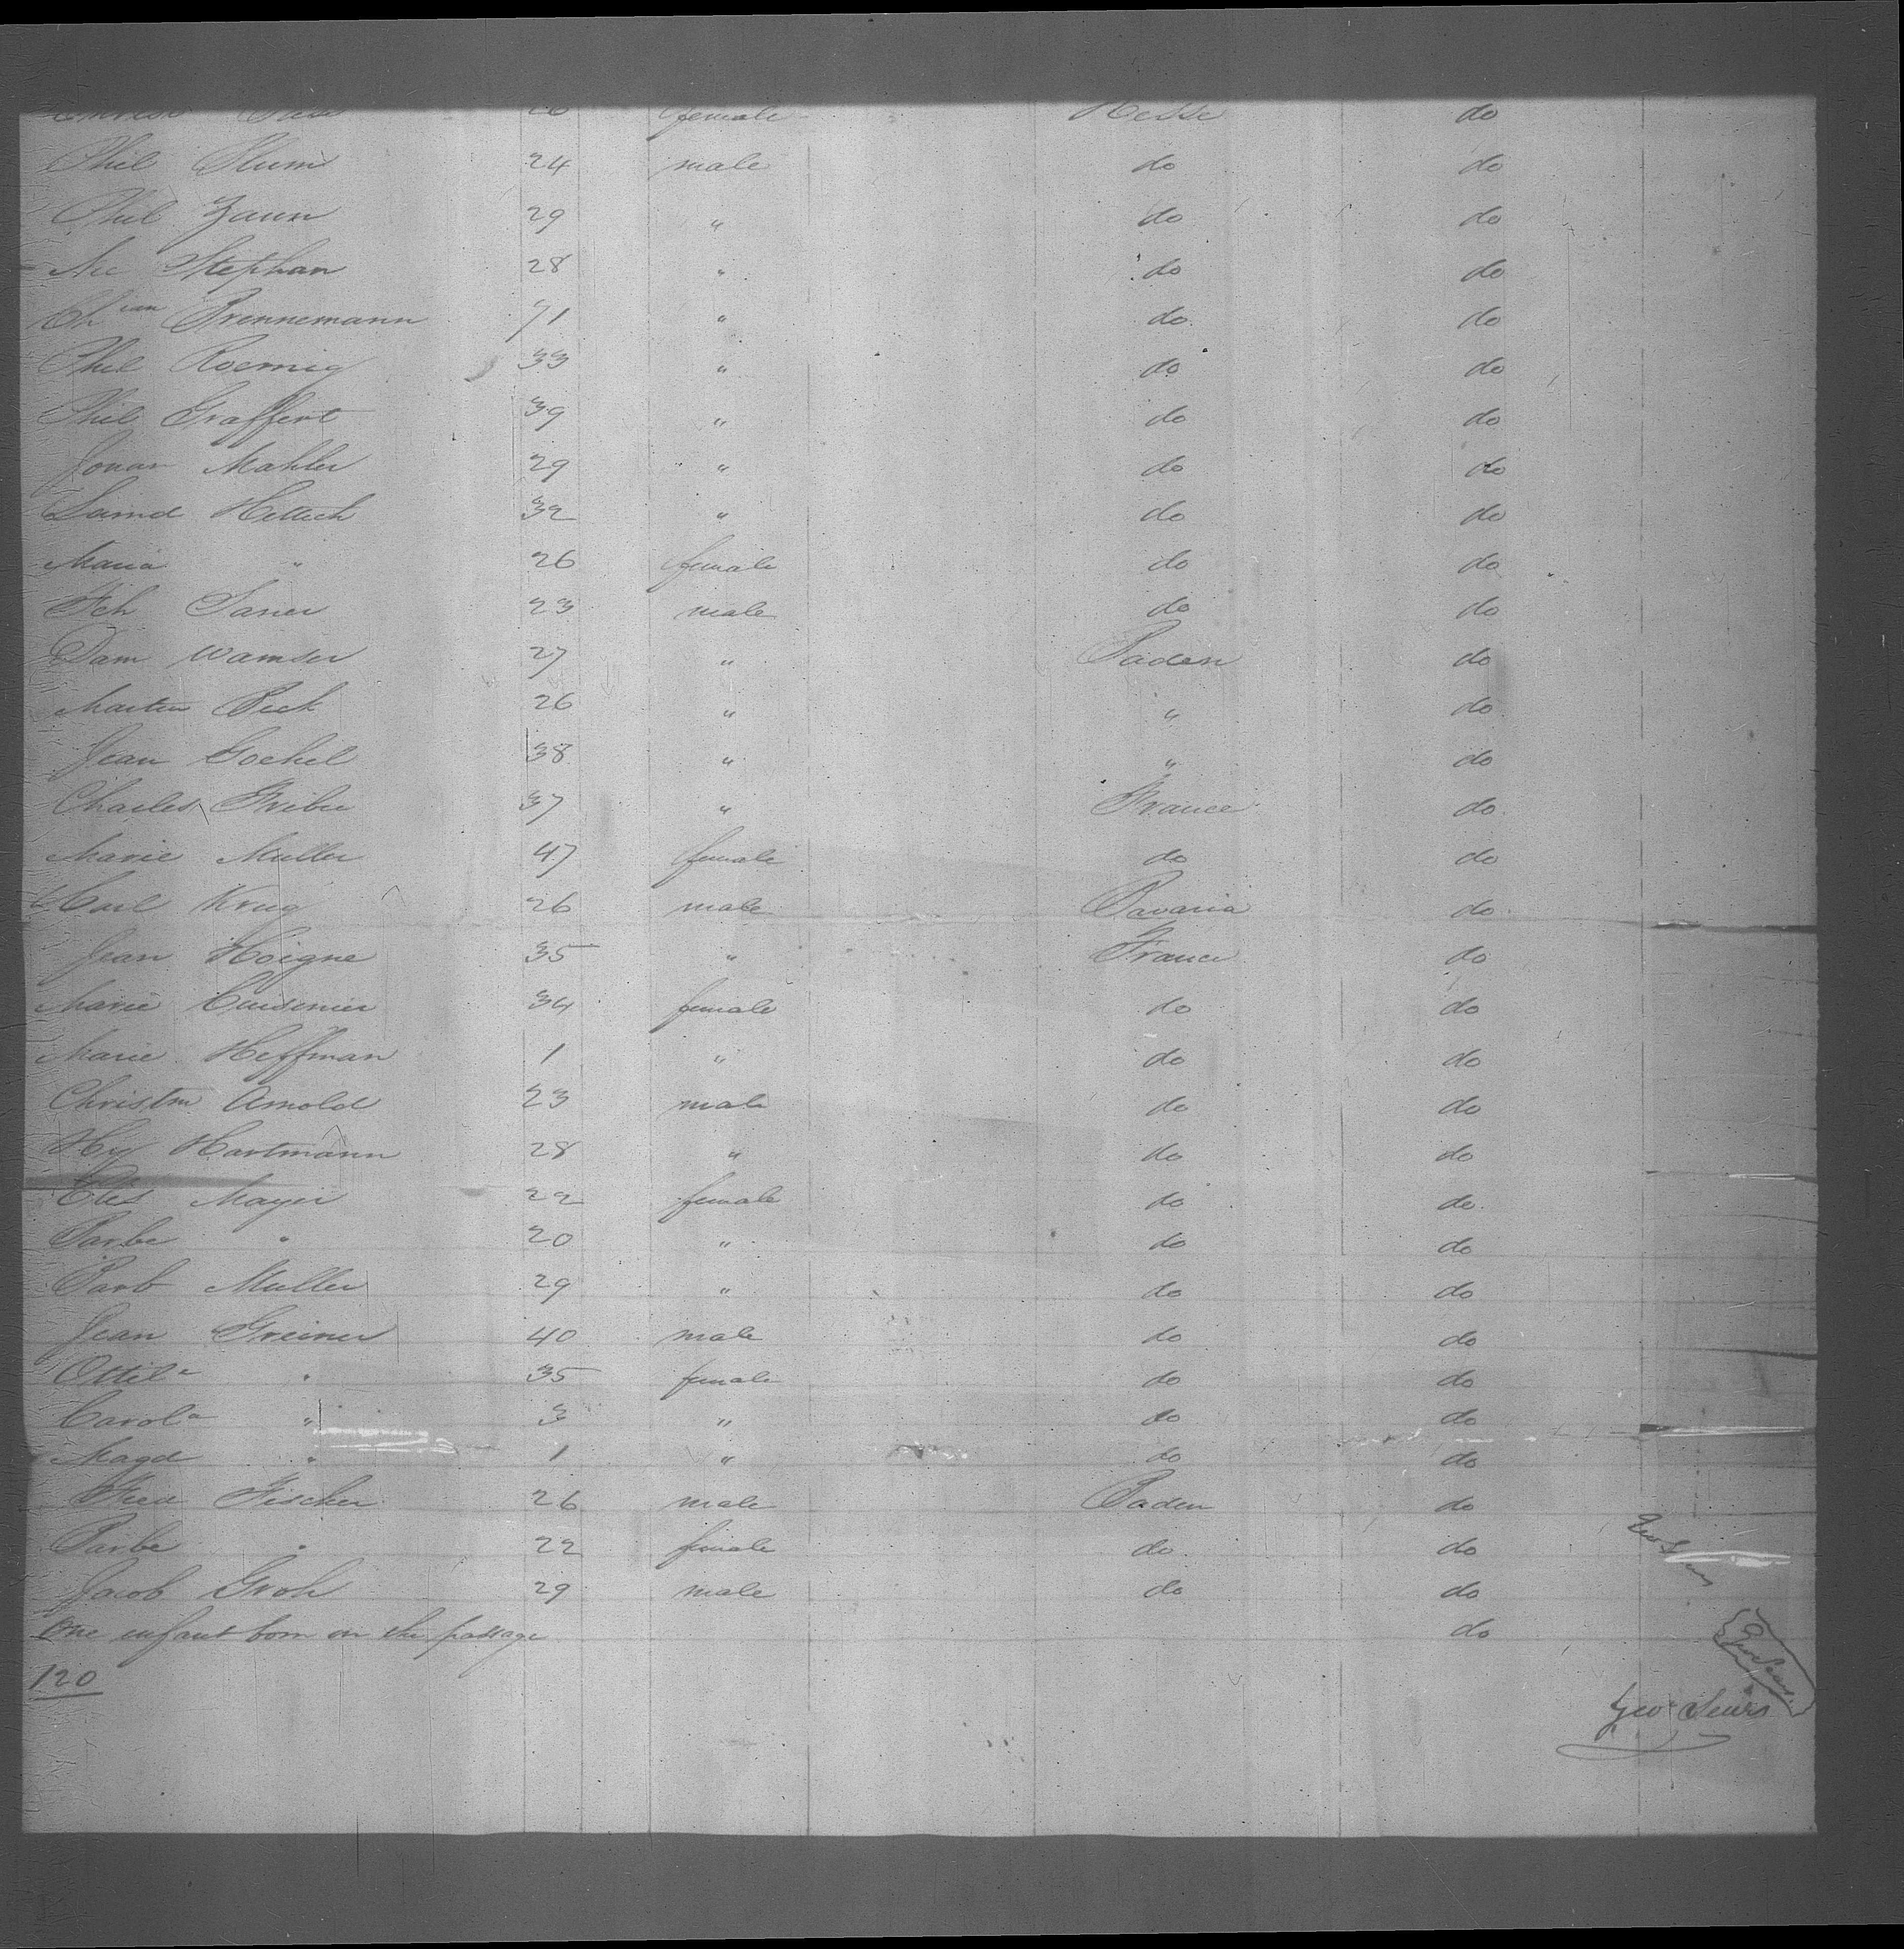 26 female Hesse do
Phil Blum 24 male do do
Phil Zaun 29 " do do
Nic Stephan 28 " do do
Ch ian Brennemann 71 " do do
Phil Roemig 33 " do do
Phil Graffert 39 " do do
Mahler 29 " do do
Hettich 32 " do do
Maria " 26 female do do
23 male do do
Dam Wamser 27 " Baden do
Martin Beck 26 " " do
Jean Goehel 38 " " do
Charles 37 " France do
Marie Muller 47 female do do
Carl Krug 26 male Bavaria do
Jean Hoigne 35 " France do
Marie Cuisenier 34 female do do
Marie Heffman 1 " do do
Christn Arnold 23 male do do
Hy Hartmann 28 " do do
Mayer 22 female do do
Barbe " 20 " do do
Barb Muller 29 " do do
Jean Greiner 40 male do do
Ottil a " 35 female do do
Carol a " 3 " do do
Magd " 1 " do do
Fred Fischer 26 male Baden do
Barbe " 22 female do do
Jacob Groh 29 male do do
One infant born on the passage do
120
Geo Sears